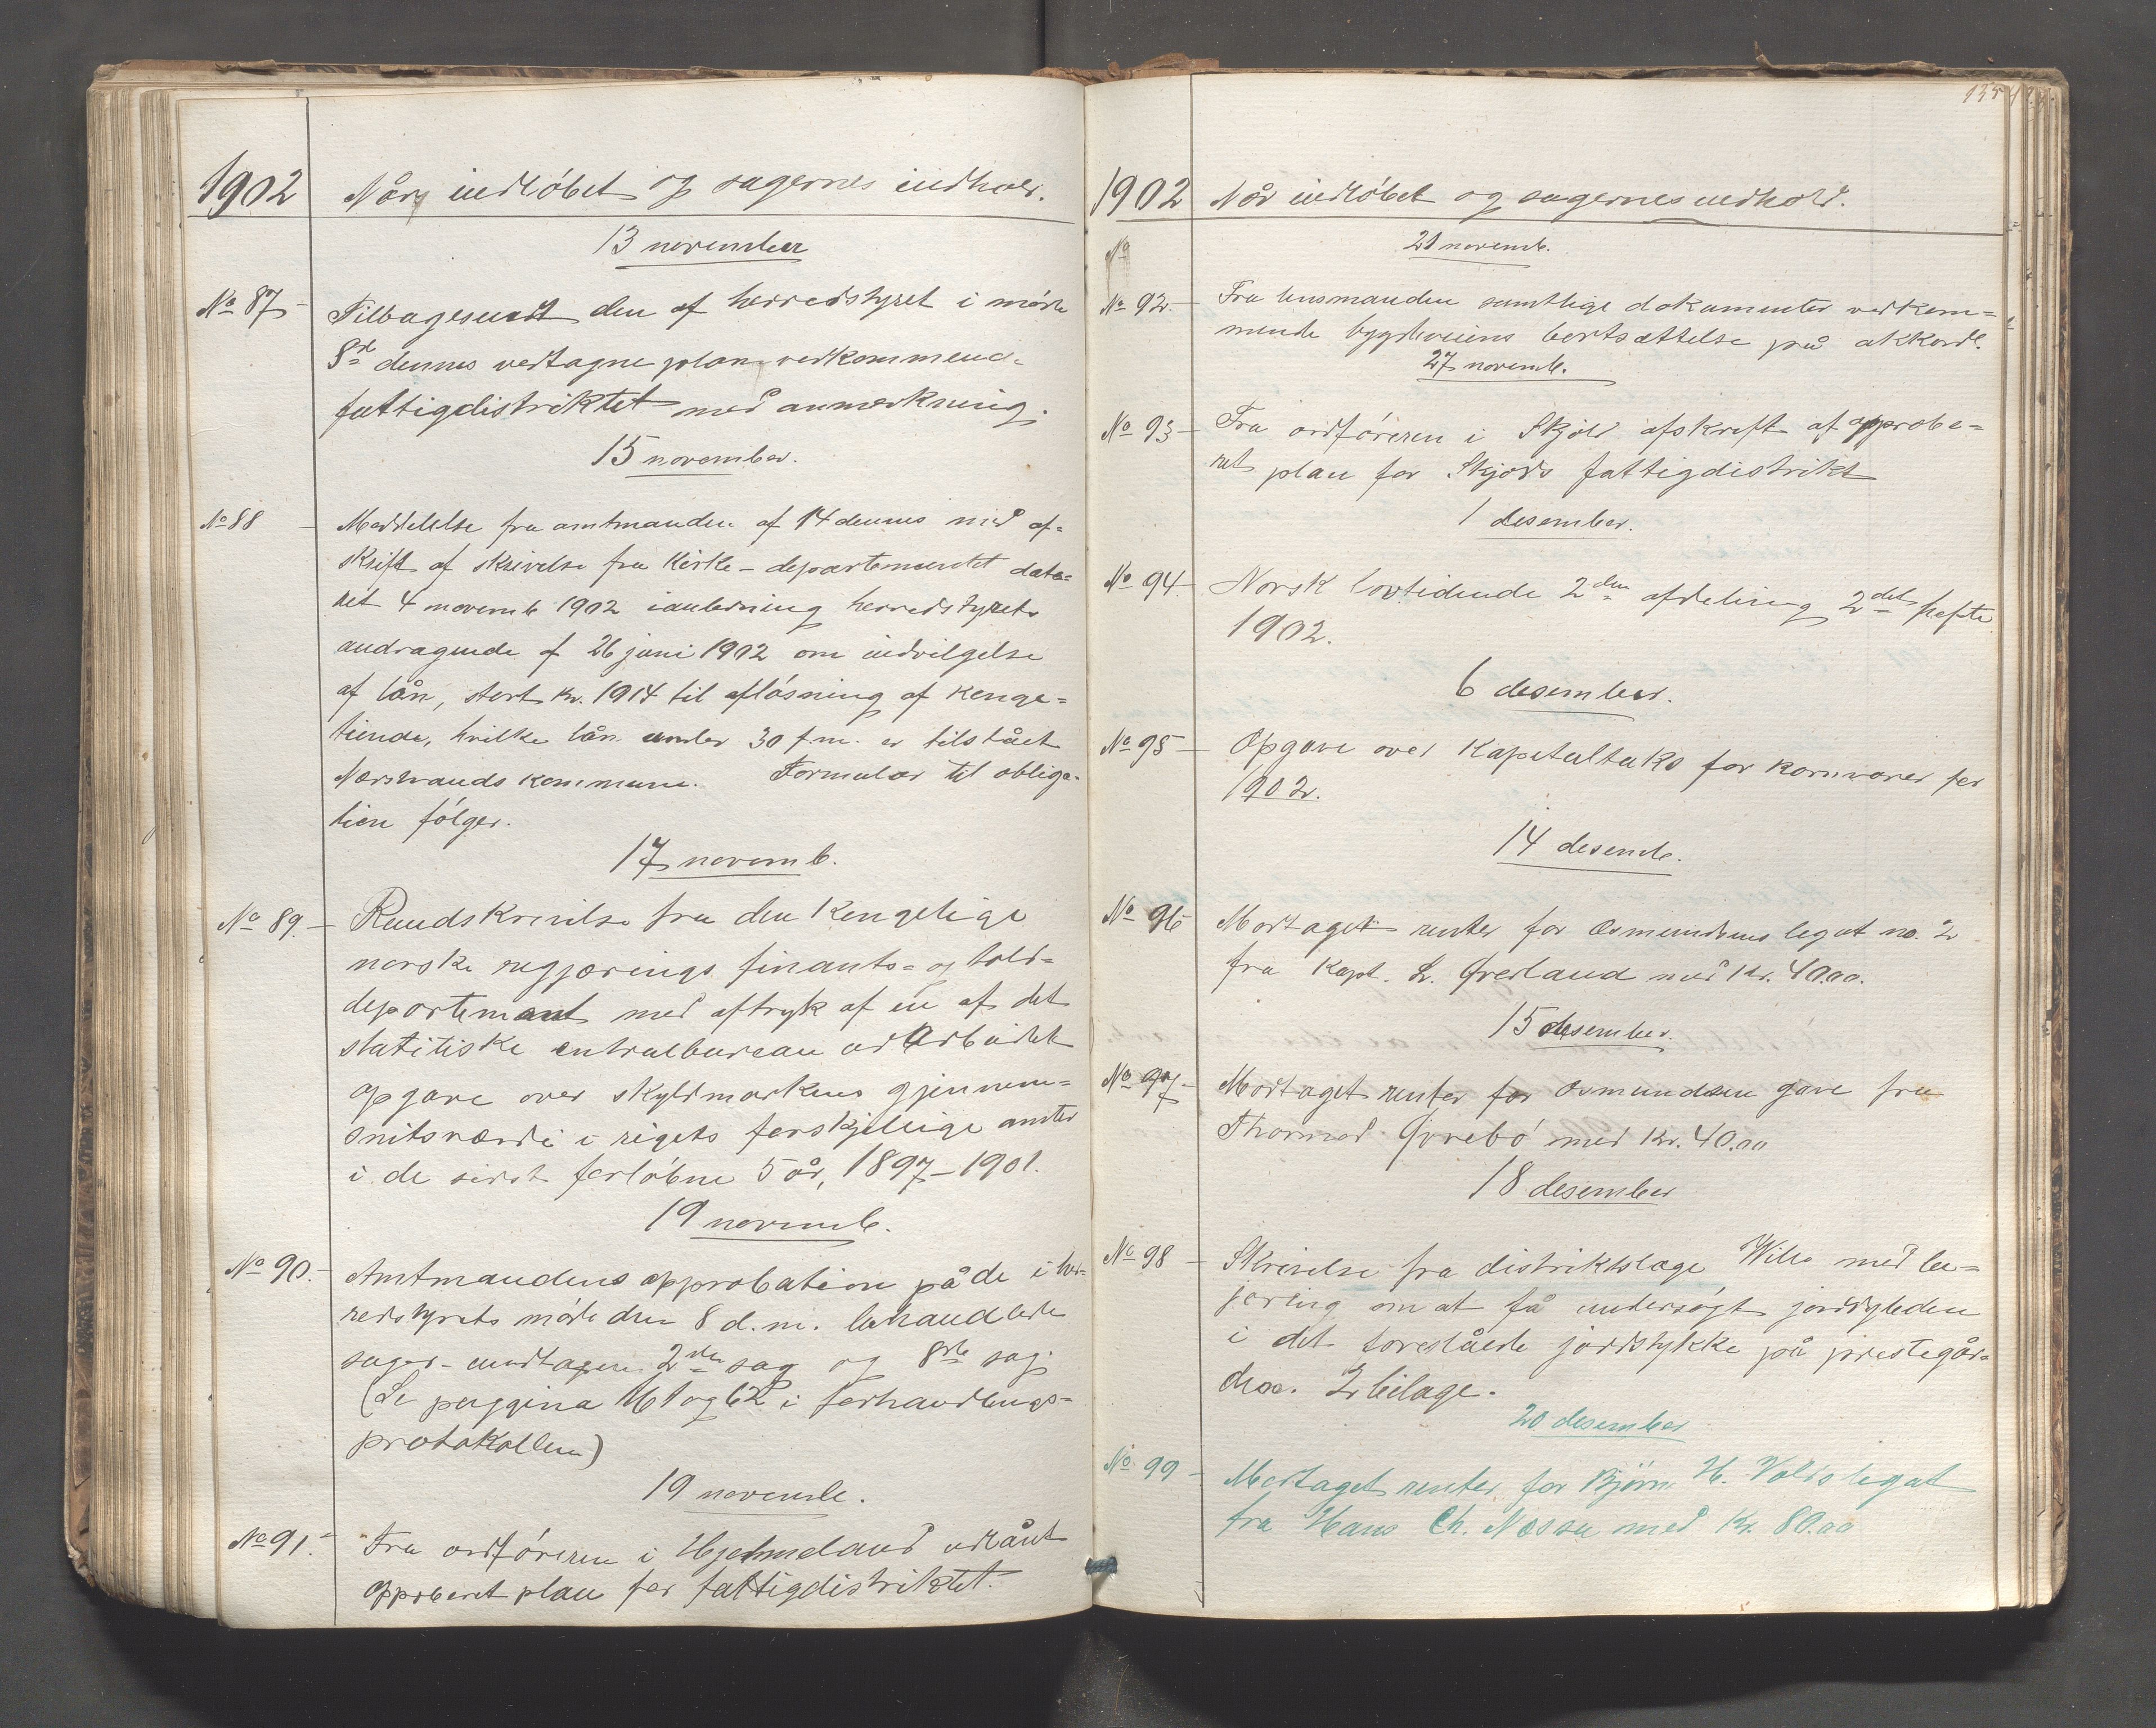 1902 Når indløbet og sagernes indhold.
13 november
No 87 - Tilbagesendt den af herredstyret i møde
8de dennes vedtagne plan vedkommend-
fattigdistriktet med anmerkning.
15 november.
No 88 - Meddelelse fra amtmanden af 14 dennes med af-
skrift af skrivelse fra kirke-departementet date-
ret 4 novemb 1902 i anledning herredstyrets
andragende af 26 juni 1902 om indvilgelse
af lån, stort kr. 1914 til afløsning af konge-
tiende, hvilke lån under 30 f.m. er tilstået
Nærstrands kommune. Formular til obliga-
tion følger.
17 novemb.
No 89. - Rundskrivelse fra den kongelige
norske regjerings finants- og told-
departement med aftryk af en af det
statitiske centralbureau udarbeidet
opgave over skyldmarkens gjennem-
snitsværdi i rigets forskjellige amter
i de sidst forløbne 5 år, 1897-1901.
19 novemb.
No 90. - Amtmandens approbation på de i her-
redstyrets møde den 8 d.m. behandlede
sager - undtagen 2den sag og 8de sag.
(Se paggina 161 og 62 i forhandlings-
protokollen)
19 novemb.
No 91. - Fra ordføreren i Hjelmeland udlånt
approberet plan for fattigdistriktet.
135
1902 Når indløbet og sagernes indhold.
No
21 novemb.
No 92. - Fra lensmanden samtlige dokumenter vedkom-
mende bygdeveiens bortsættelse på akkord.
27 novemb.
No 93 - Fra ordføreren i Skjold afskrift af approbe-
ret plan for Skjolds fattigdistrikt
1 desember.
No 94. Norsk lovtidende 2den afdeling 2det hefte
1902.
6 desember.
No 95 - Opgave over kapitaltakst for kornvarer for
1902.
14 desemb.
No 96 Modtaget renter for Osmundsens legat no. 2
fra kapt. L. Øverland med kr. 40.00.
15 desember.
No 97 - Modtaget renter for Osmundsen gave fra
Thormod Øvrebø med kr. 40.00
18 desember
No 98 - Skrivelse fra distriktslæge Wille med be-
gjæring om at få undersøgt jorddybden
i det foreslåede jordstykke på prestegår-
den. 2 bilage.
20 desember
No 99 - Modtaget renter for Bjørn H. Volds legat
fra Hans Ch. Nessa med Kr. 80.00